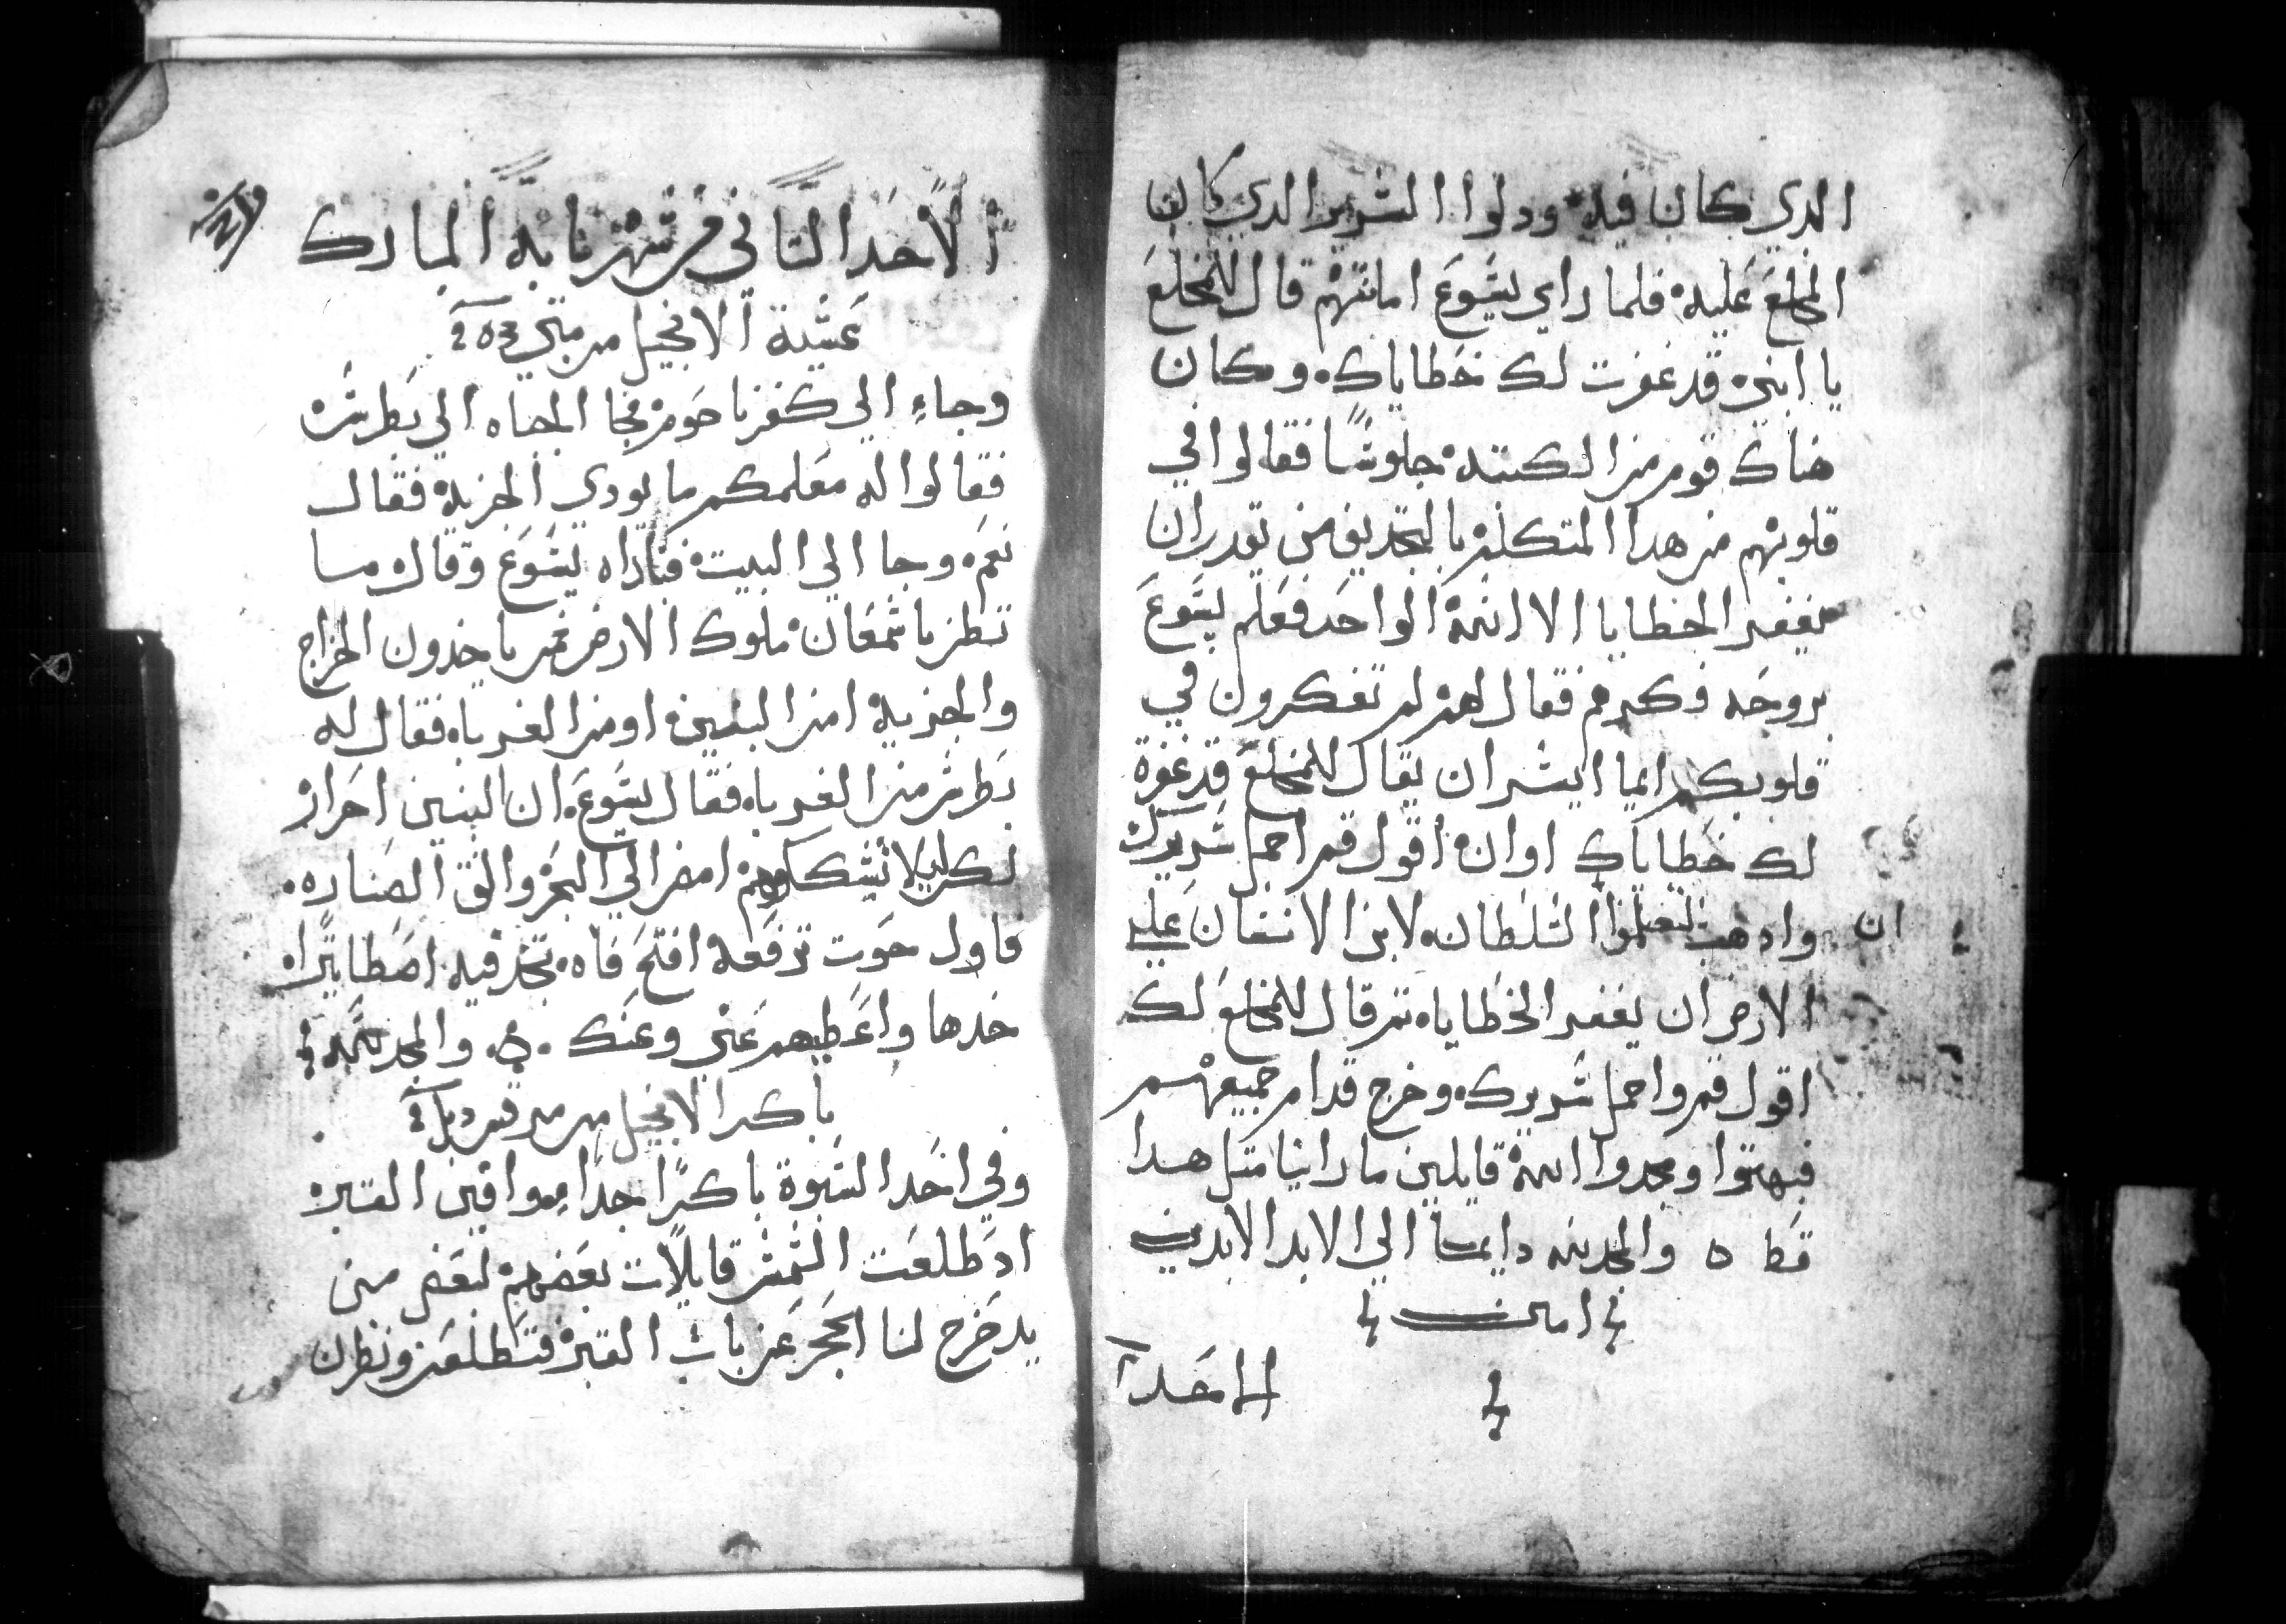 الدي كان فيه ودلوا السرير الدي كان
المخلع عليه فلما راي يسوع امانتهم قال للمخلع
يا ابني قد غفرت لك خطاياك وكان
هناك قوم من الكتبه جلوسًا فقالوا في
قلوبهم من هدا المتكلم بالتجديف من يقدر ان
يغفر الخطايا الا الله الواحد فعلم يسوع
بروحه فكرهم فقال لهم لم تفكرون في
قلوبكم ايما ايسر ان يقال للمخلع قد غفرة
لك خطاياك اوان اقول قم احمل سريرك
وادهب لتعلموا ان السلطان لابن الانسان علي
الارض ان يغفر الخطايا تم قال للمخلع لك
اقول قم واحمل سريرك وخرج قدام جميعهم
فبهتوا ومجدوا الله قايلين ما راينا متل هدا
قط ه والمجد لله دايمًا الي الابد الابدين
امين
الاحد
الاحد التاني من شهر بابه المبارك
عشية الانجيل من متي
وجاء الي كفرناحوم فجا الجباه الي بطرس
فقالوا له معلمكم ما يودي الجزية فقال
نعم وجا الي البيت فناداه يسوع وقال ما
تظن يا سمعان ملوك الارض ممن ياخدون الخراج
والجزية امن البنين او من الغربا فقال له
بطرس من الغربا فقال يسوع ان البنين احرار
لكن ليلا نشككهم امض الي البحر والق الصناره
فاول حوت ترفعه افتح فاه تجد فيه اصطاتيرًا
خدها واعطيهم عني وعنك والمجد لله
باكر الانجيل من مرقس
وفي احد السبوة باكرًا جدا موافين القبر
اد طلعت الشمس قايلات بعضهم لبعض من
يدخرج لنا الحجر عن باب القبر فتطلعن ونظرن